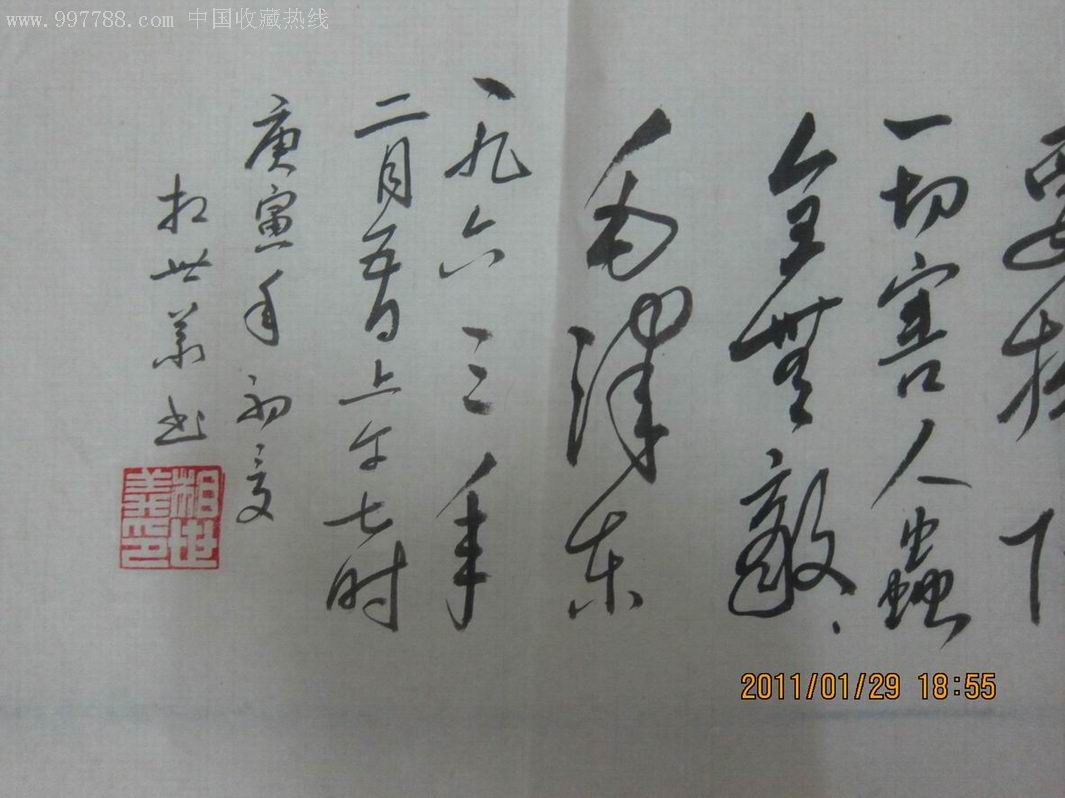 www.997788.com 中国收藏热线
要
一切害人蟲
全無敵.
毛澤东
一九六三年
二月五日上午七时
庚寅年初夏
相世義书
相世
義印
2011/01/29 18:55